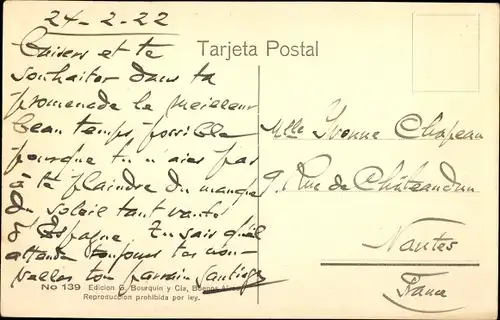 24-2-22
Tarjeta Postal
et te
souhaiter dans ta
promenade le meilleur
beau temps possible
pourque tu n'aies pas
à te plaindre du manque
du soleil tant vanté
d'Espagne. Tu sais qu'il
attend toujours tes nou-
velles ton parrain Santiago
Mlle Yvonne Chapeau
9, Rue de Châteaudun
Nantes
France
No 139 Edicion G. Bourquin y Cía, Buenos Aires
Reproduccion prohibida por ley.